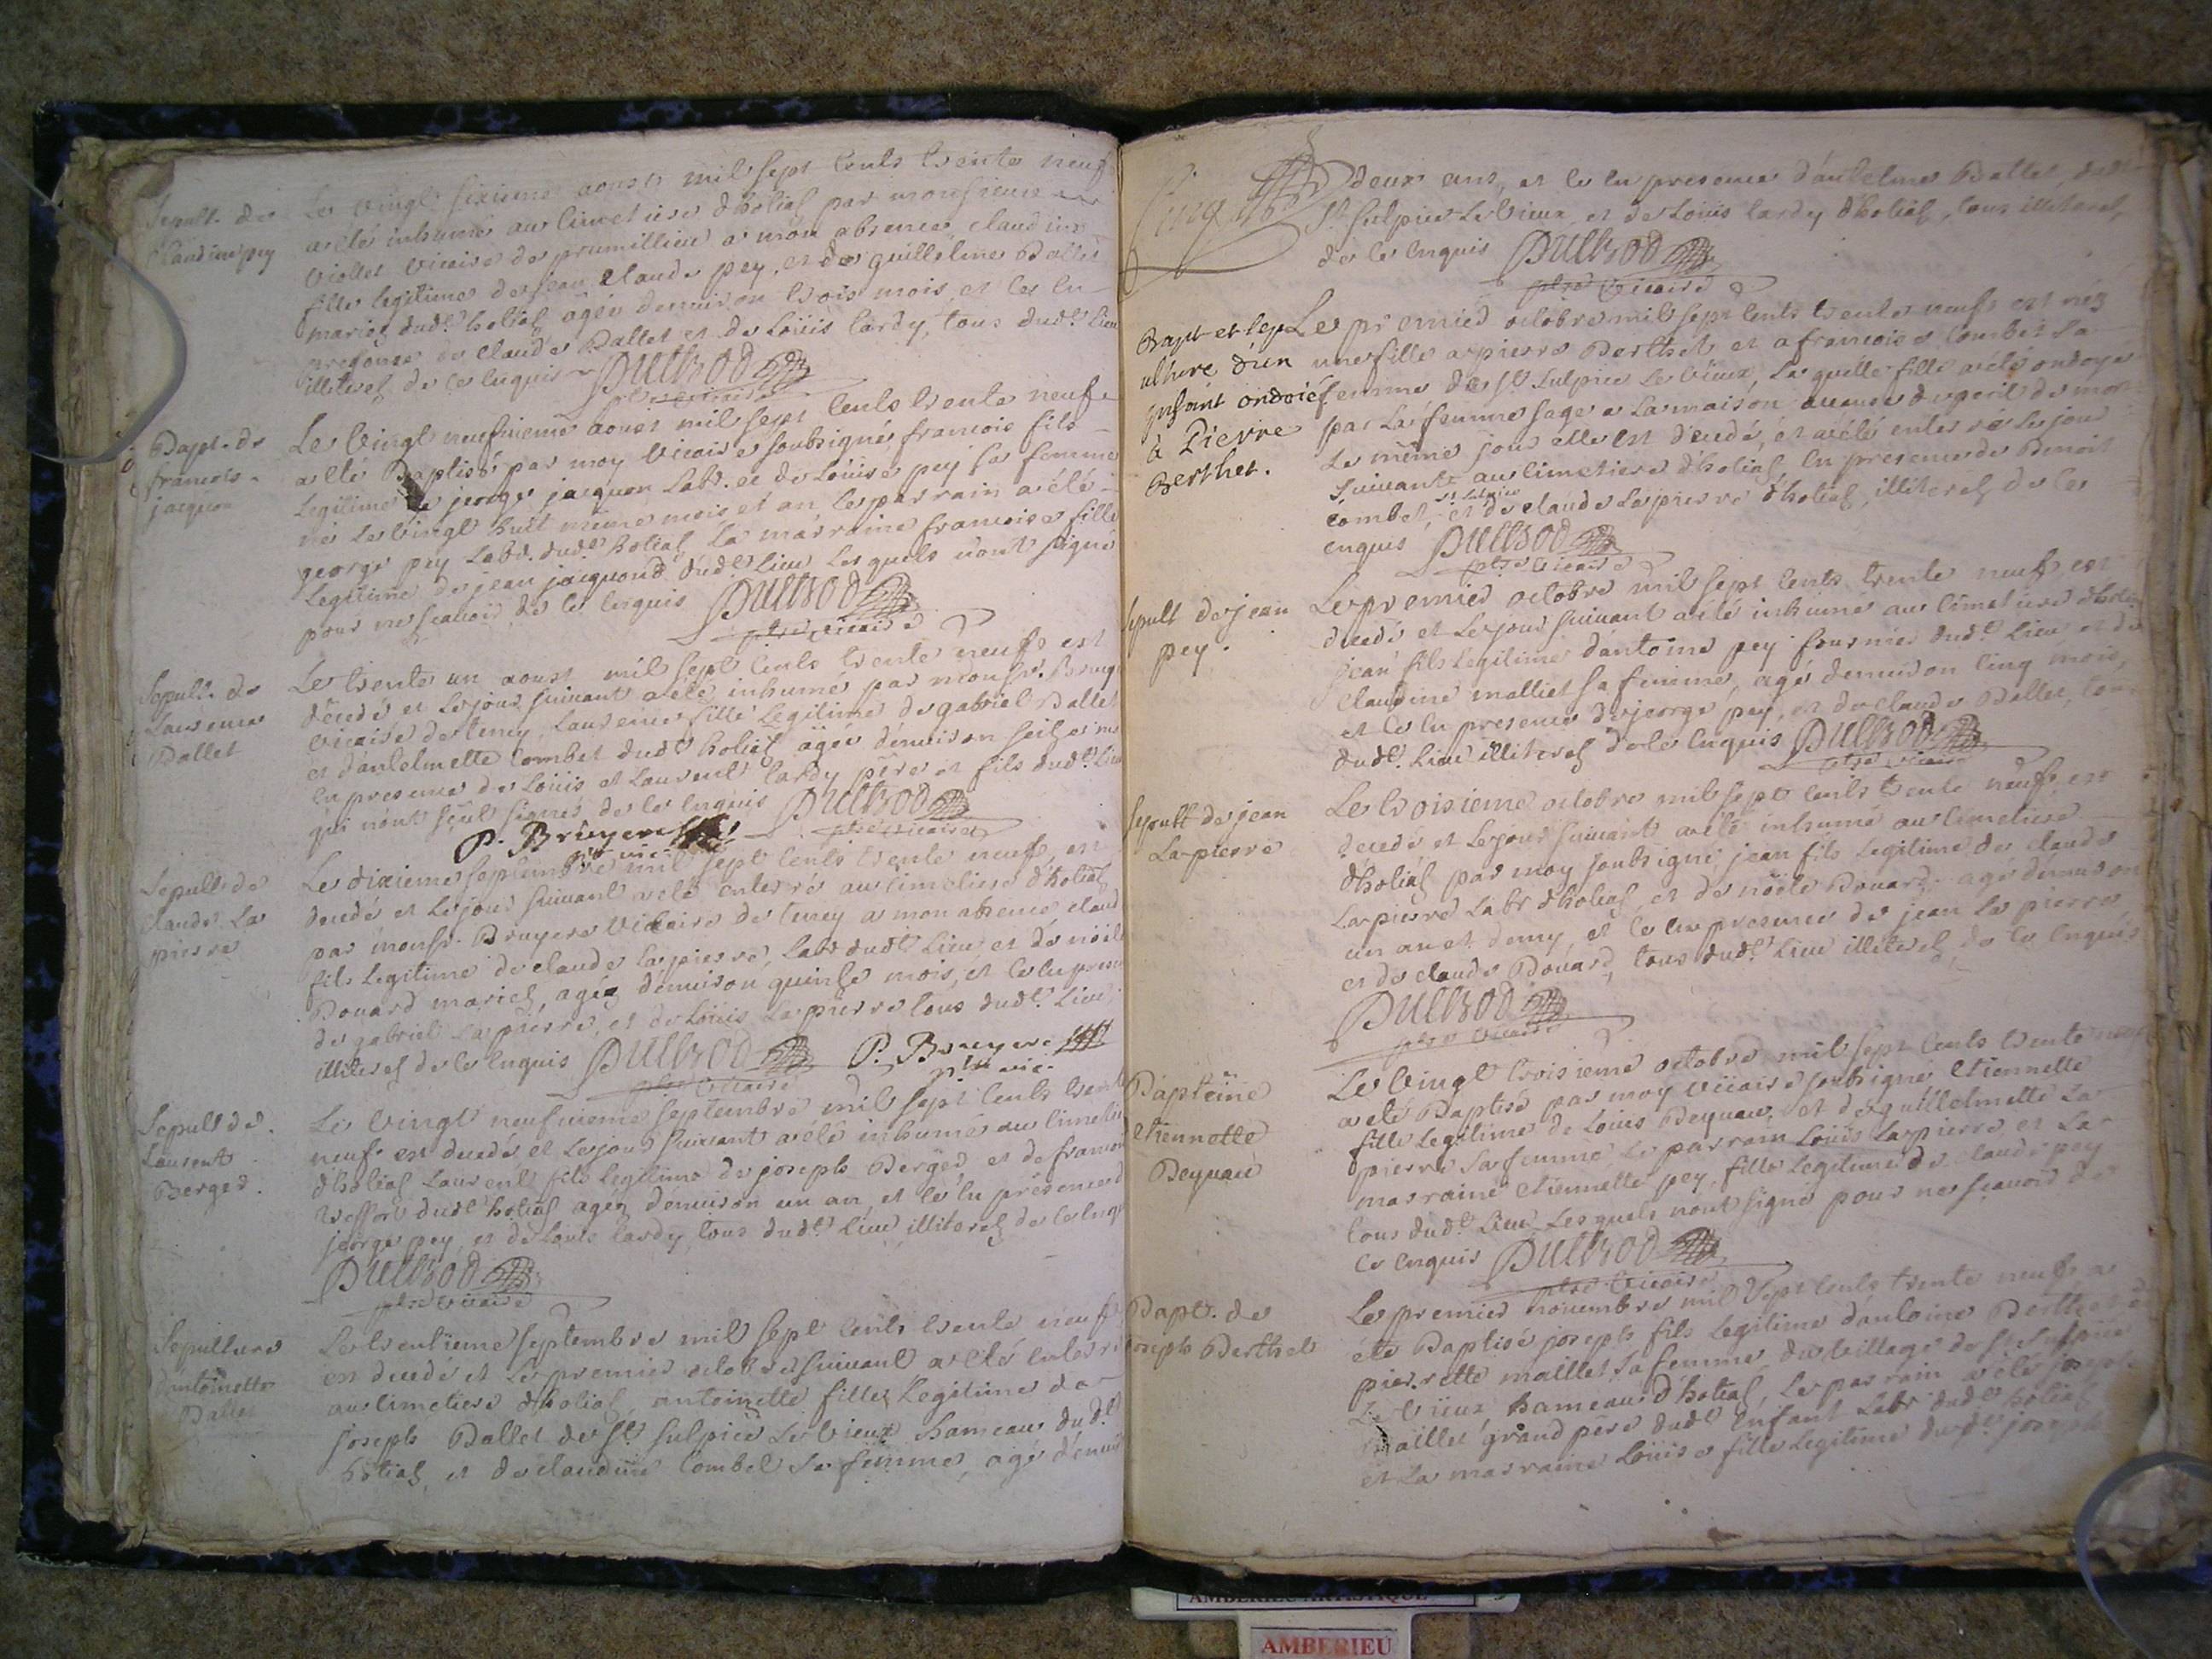 Sepult. de
Claudine pey
Le vingt sixieme aoust mil sept cents trente neuf
a été inhumé au cimetiere d'holiaz par monsieur
viollet vicaire de prumillieu a mon absence, claudine
fille legitime de jean claude pey, et de guillelmine Ballet
mariez dudt. holiaz, agée denviron trois mois, et ce en
presence de claude Ballet et de Loüis lardy, tous dudt. lieu
illiterez de ce enquis
ptre vicaire
Bapt. de
francois
jacquon
Le vingt neufvieme aoust mil sept cents trente neuf
a été Baptisé par moy vicaire soubsigné, francois fils
legitime de george jacquon Labr. et de Loüise pey sa femme
né le vingt huit même mois et an, le parrain a été
george pey Labr. dudt. holiaz, la marraine francoise fille
legitime de jean jacquond dudt. lieu lesquels n'ont signé
pour ne scavoir de ce enquis
ptre vicaire
Sepult. de
Laurence
Ballet
Le trente un aoust mil sept cents trente neuf est
décedé et le jour suivant a été inhumé par monsr. Bruye
vicaire de tenay, Laurence fille legitime de gabriel Ballet
et d'antelmette Combet dudt. holiaz agée denviron seize
en presence de Loüis et Laurent lardy pere et fils dudt. lieu
qui n'ont sçeut signer de ce enquis
ptre vicaire
P. Bruyere
ptre vic.
Sepult. de
claude La
pierre
Le dixieme septembre mil sept cents trente neuf, est
decedé et le jour suivant a été enterré au cimetiere d'holiaz
par monsr. Bruyere vicaire de tenay a mon absence, claude
fils legitime de claude lapierre, Labr dudt. lieu et de noële
Bouard mariez, agéz denviron quinze mois, et ce en presence
de gabriel la pierre, et de Loüis Lapierre tous dudt. lieu
illiterez de ce enquis
ptre vicaire
P. Bruyere
ptre vic.
Sepult de
Laurent
Berger.
Le vingt neufvieme septembre mil sept cents trente
neuf est decedé, et le jour suivant a été inhumé au cimetiere
d'holiaz Laurent fils legitime de joseph Berger et de francoise
dudt. holiaz agéz denviron un an, et ce en presence de
jeorge pey, et de Louis lardy, tous dudt. lieu, illiterez de ce enquis
ptre vicaire
Sepulture
d'antoinette
Ballet
Le trentieme septembre mil sept cents trente neuf
est decedé et le premier octobre suivant a été enterré
au cimetiere d'holiaz, antoinette fille Legitime de
joseph Ballet de St. sulpice le vieux hameau dudt.
holiaz, et de claudine Combet sa femme, agé d'environ
Cinq
deux ans, et ce en presence d'antelme Ballet, de
St. sulpice le vieux et de Loüis lardy d'holiaz, tous illiterez,
de ce enquis
ptre vicaire
Bapt et sep
ulture d'un
enfant ondoié
à Pierre
Berthet.
Le premier octobre mil sept cents trente neuf est néz
une fille a pierre Berthet et a francoise Combet sa
femme de St. sulpice le vieux, laquelle fille a été ondoyé
par la femme sage a la maison a cause du peril de mort
le même jour elle est decedé, et a été enterré le jour
suivant au cimetiere d'holiaz, en presence de Benoit
Combet, et de claude Lapierre d'holiaz, illiterez de ce
enquis
ptre vicaire
Sepult de jean
pey.
Le premier octobre mil sept cents trente neuf, est
decedé et le jour suivant a été inhumé au cimetiere d'holiaz
jean fils legitime d'antoine pey fournier dudt. lieu et de
claudine malliet sa femme, agé denviron cinq mois,
et ce en presence de jeorge pey, et de claude Ballet, tous
dudt. lieu illiterez de ce enquis
ptre vicaire
Sepult de jean
La pierre
Le troisieme octobre mil sept cents trente neuf, est
decedé et le jour suivant a été inhumé au cimetiere
d'holiaz par moy soubsigné, jean fils legitime de claude
Lapierre Labr d'holiaz, et de noële Bouard, agé denviron
un an et demy, et ce en presence de jean La pierre
et de claude Bouard, tous dudt. lieu illiterez, de ce enquis
ptre vicaire
Baptême
etiennette
Deynaud
Le vingt troisieme octobre mil sept cents trente neuf
a été Baptisé par moy vicaire soubsigné etiennette
fille legitime de Louis et de guillelmette La
pierre sa femme, le parrain Loüis Lapierre et la
marraine etiennette pey, fille legitime de claude pey
tous dudt. lieu lesquels n'ont signé pour ne scavoir de
ce enquis
ptre vicaire
Bapt. de
joseph Berthet
Le premier novembre mil sept cents trente neuf a
été Baptisé joseph fils legitime d'antoine Berthet et
pierrette maillet sa femme du village de St. sulpice
le vieux hameau d'holiaz, le parrain a été joseph
maillet grand pere dudt. enfant Labr dudt. holiaz
et la marraine Loüise fille legitime dudt. joseph
AMBERIEU ARTISTIQUE
AMBERIEU